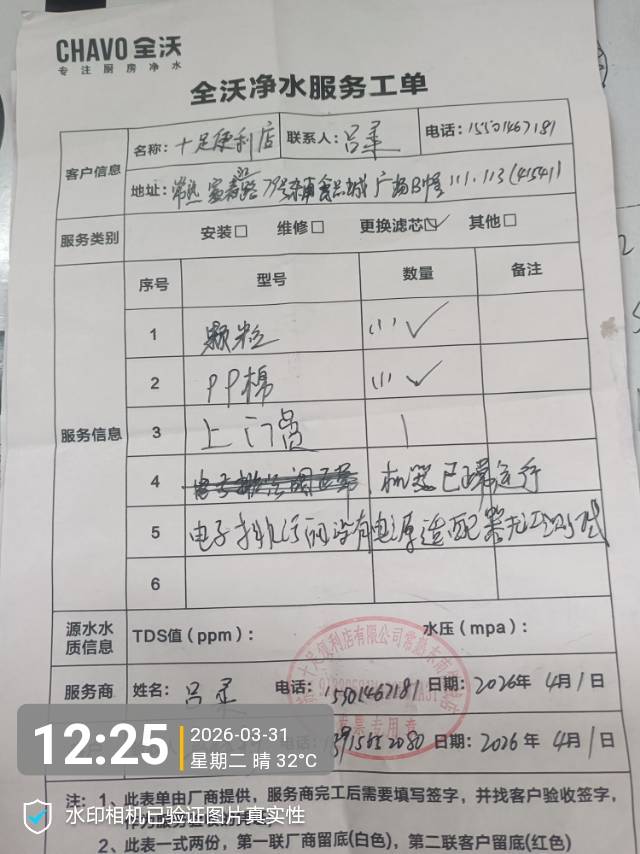 CHAVO 全沃
专注厨房净水
全沃净水服务工单
客户信息
名称：十足便利店 联系人：吕军 电话：15501467181
地址：常熟 79号 食品城广场B幢111.113(41541)
服务类别 安装□ 维修□ 更换滤芯☑ 其他□
服务信息
序号 型号 数量 备注
1 颗粒 111 ✓
2 PP棉 111 ✓
3 上门费 1
4 机器已正常运行
5 电子排污阀没有电源适配器无法测试
6
源水水质信息 TDS值（ppm）： 水压（mpa）：
服务商 姓名：吕军 电话：15501467181 日期：2026年4月1日
日期：2026年4月1日
12:25
2026-03-31
星期二 晴 32℃
注：1、此表单由厂商提供，服务商完工后需要填写签字，并找客户验收签字，
水印相机已验证图片真实性
2、此表一式两份，第一联厂商留底(白色)，第二联客户留底(红色)